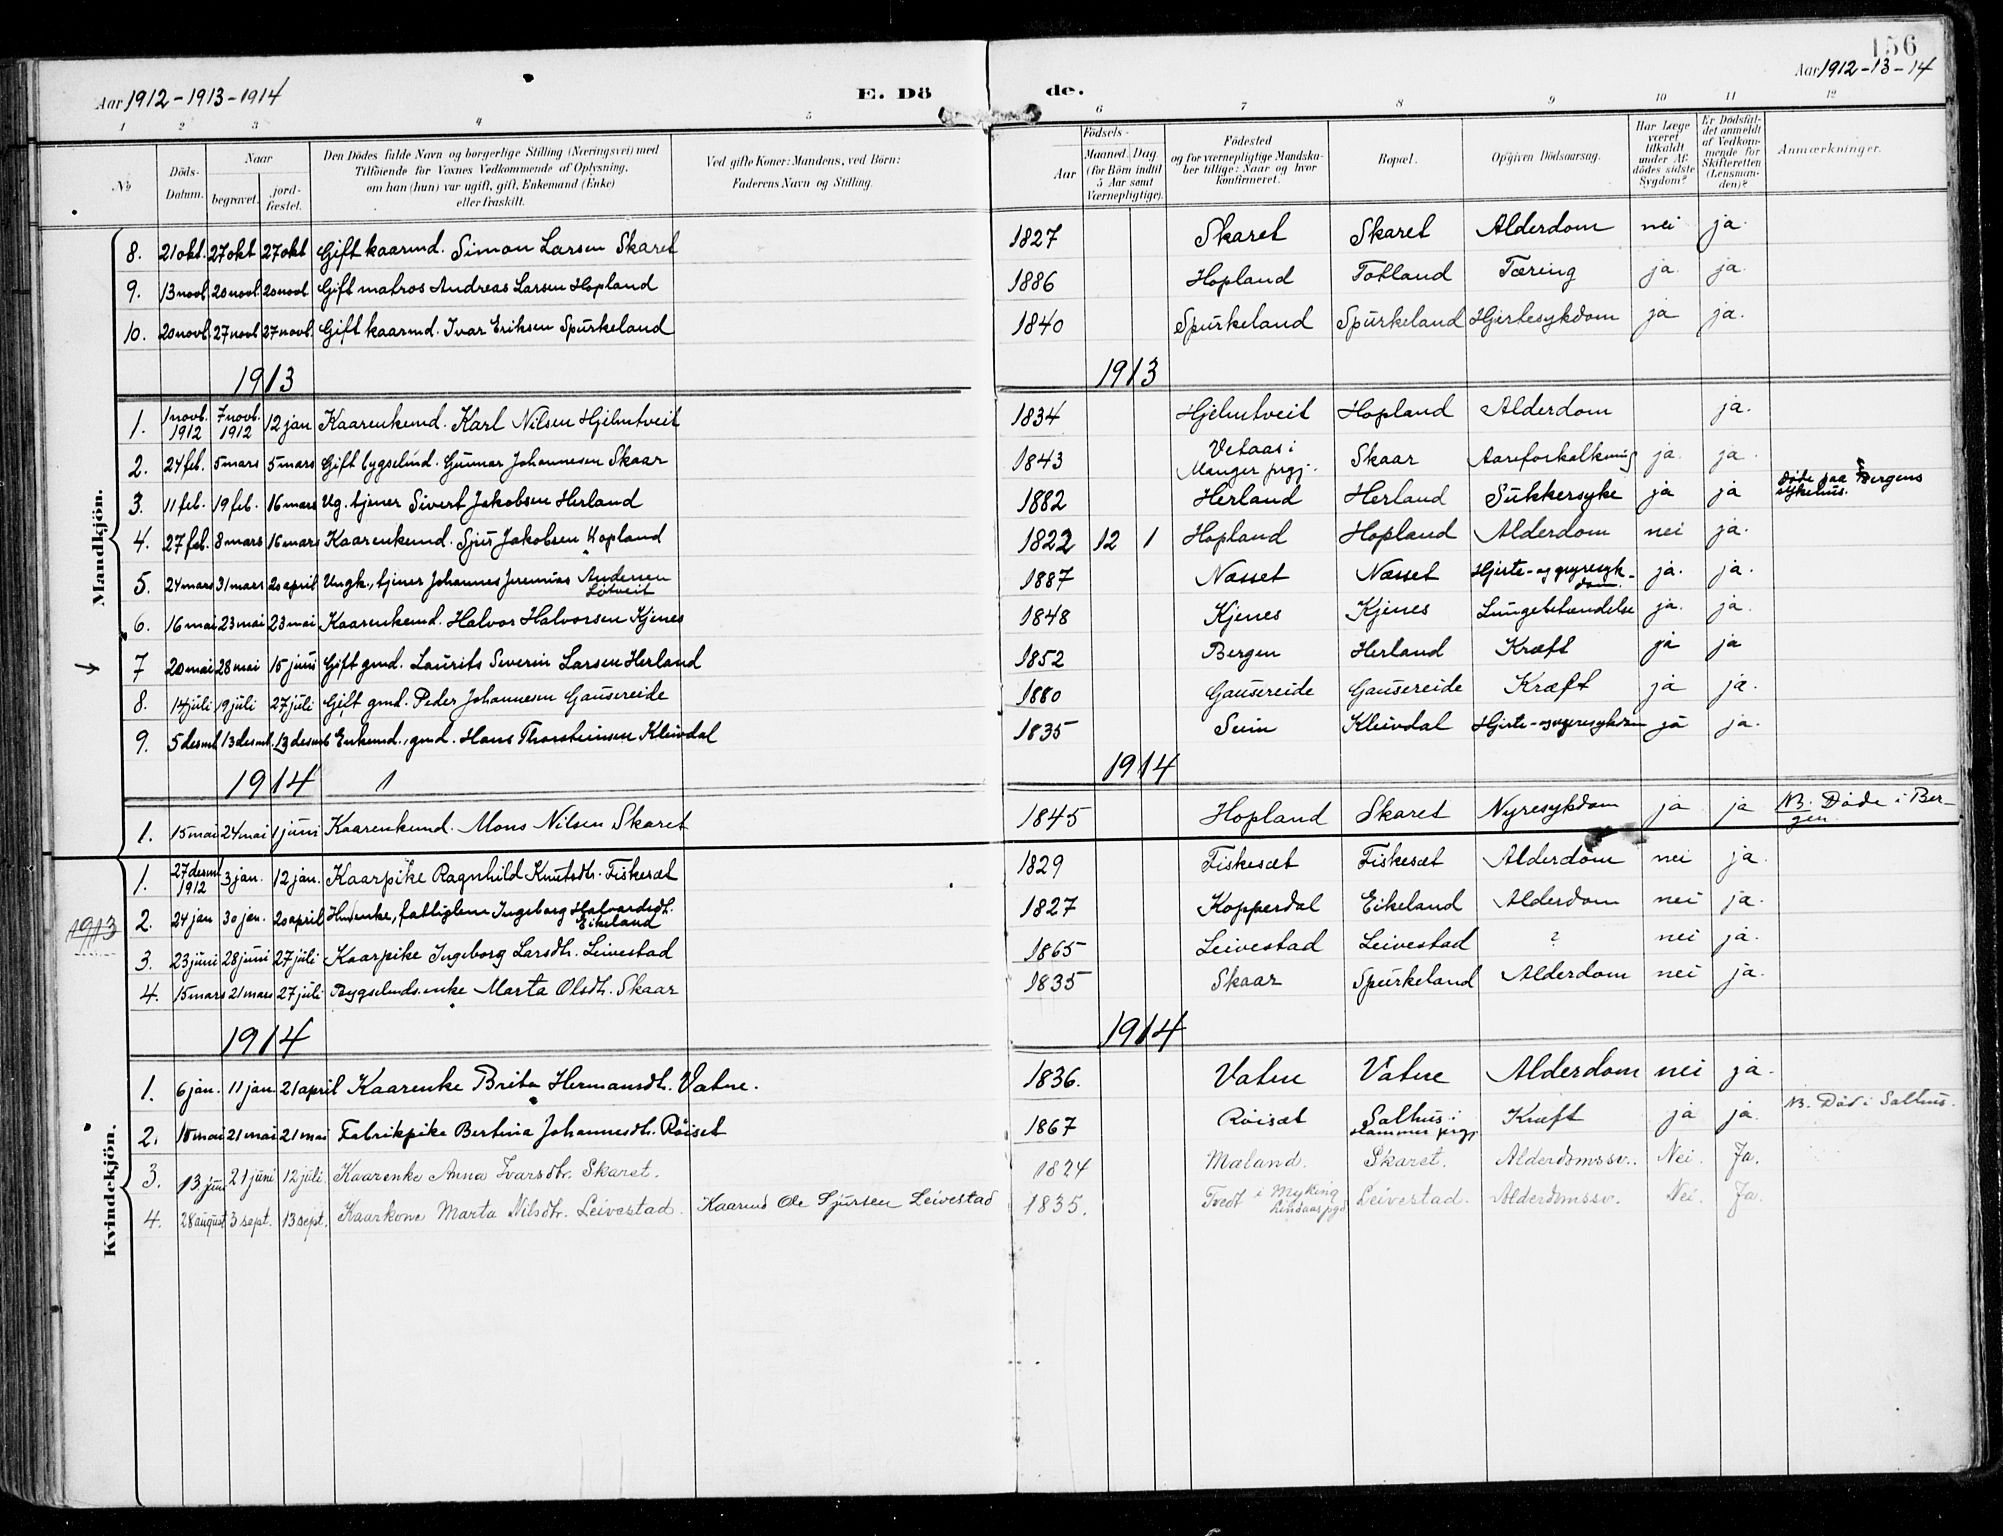 156
Aar 1912-1913-1914 E. Dö de. Aar 1912-13-14
1 2 3 4 5 6 7 8 9 10 11 12
No Döds-Datum. Naar begravet. jordfæstet. Den Dödes fulde Navn og borgerlige Stilling (Næringsvei) med Tilföiende for Voxnes Vedkommende af Oplysning, om han (hun) var ugift, gift, Enkemand (Enke) eller fraskilt. Ved gifte Koner: Mandens, ved Börn: Faderens Navn og Stilling. Födsels- Aar Maaned. Dag (for Börn indtil 5 Aar samt Værnepligtige). Födested og for værnepligtige Mandskaber tillige: Naar og hvor konfirmeret. Bopæl. Opgiven Dödsaarsag. Har Læge været tilkaldt under Afdödes sidste Sygdom? Er Dödsfaldet anmeldt af Vedkommende for Skifteretten (Lensmanden)? Anmærkninger.
Mandkjön.
8. 21 okt. 27 okt 27 okt Gift kaarmd. Simon Larsen Skaret 1827 Skaret Skaret Alderdom nei ja.
9. 13 novb. 20 novb. 20 novb. Gift matros Andreas Larsen Hopland 1886 Hopland Totland Tæring ja. ja.
10. 20 novb. 27 novb. 27 novb. Gift kaarmd. Ivar Eriksen Spurkeland 1840 Spurkeland Spurkeland Hjertesykdom ja ja.
1913 1913
1. 1 novb. 1912 7 novb. 1912 12 jan Kaarenkemd. Karl Nilsen Hjelmtveit 1834 Hjelmtveit Hopland Alderdom ja.
2. 24 feb. 5 mars 5 mars Gift bygselmd. Gunnar Johannesen Skaar 1843 Vetaas i Manger prgj. Skaar Aareforkalkning ja. ja.
3. 11 feb. 19 feb. 16 mars Ug. tjener Sivert Jakobsen Herland 1882 Herland Herland Sukkersyke ja ja Døde paa Bergens sykehus.
4. 27 feb. 8 mars 16 mars Kaarenkemd. Sjur Jakobsen Hopland 1822 12 1 Hopland Hopland Alderdom nei ja.
5. 24 mars 31 mars 20 april Ungk., tjener Johannes Jeremias Andersen Løtveit 1887 Næsset Næsset Hjerte- og nyresykdom. ja. ja.
6. 16 mai 23 mai 23 mai Kaarenkemd. Halvor Halvorsen Kjenes 1848 Kjenes Kjenes Lungebetændelse ja. ja.
7 20 mai 28 mai 15 juni Gift gmd. Laurits Severin Larsen Herland 1852 Bergen Herland Kræft ja ja
8. 14 juli 19 juli 27 juli Gift gmd. Peder Johannesen Gausereide 1880 Gausereide Gausereide Kræft ja ja.
9. 5 desmb 13 desmb. 13 desmb Enkemd., gmd. Hans Thorsteinsen Kleivdal 1835 Seim Kleivdal Hjerte- og nyresykdom ja ja.
1914 1 1914
1. 15 mai 24 mai 1 juni Kaarenkemd. Mons Nilsen Skaret 1845 Hopland Skaret Nyresykdom ja ja NB. Døde i Bergen.
Kvindekjön.
1913
1. 27 desmb 1912 3 jan. 12 jan. Kaarpike Ragnhild Knutsdtr. Fiskesæt 1829 Fiskesæt Fiskesæt Alderdom nei ja.
2. 24 jan 30 jan. 20 april Husenke, fattiglem Ingeborg Halvardsdtr. Eikeland 1827 Kopperdal Eikeland Alderdom nei ja.
3. 23 juni 28 juni 27 juli Kaarpike Ingeborg Larsdtr. Leivestad 1865 Leivestad Leivestad ? nei ja.
4. 15 mars 21 mars 27 juli Bygselmds.enke Marta Olsdtr. Skaar 1835 Skaar Spurkeland Alderdom nei ja.
1914 1914
1. 6 jan. 11 jan 21 april Kaarenke Brita Hermansdtr. Vatne. 1836. Vatne Vatne Alderdom nei ja.
2. 10 mai 21 mai 21 mai Fabrikpike Bertina Johannesdtr. Röiset 1867 Röisæt Salhus i Hammer prgj Kræft ja ja. NB. Död i Salhus.
3. 13 juni 21 juni 12 juli Kaarenke Anna Ivarsdtr. Skaret. 1824 Mæland. Skaret. Alderdomssv. Nei. Ja.
4. 28 august 3 sept. 13 sept. Kaarkone Marta Nilsdtr. Leivestad. Kaarmd Ole Sjursen Leivestad 1835. Tvedt i Myking Lindaas pgd Leivestad. Alderdomssv. Nei. Ja.